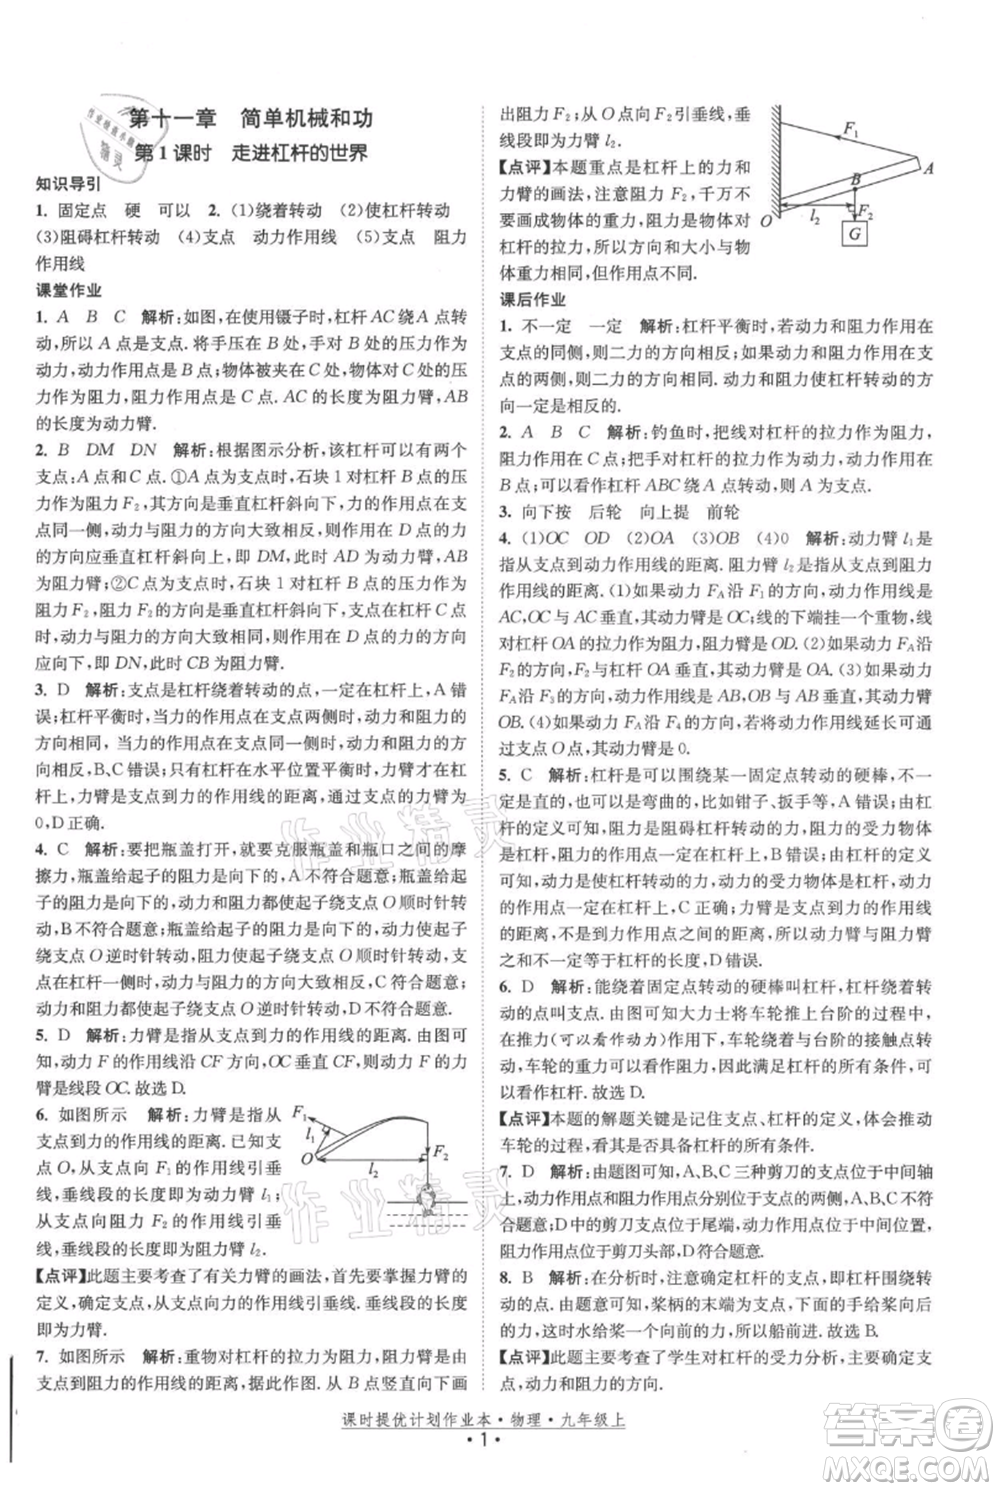 第十一章　简单机械和功
第1课时　走进杠杆的世界
知识导引
1. 固定点　硬　可以　2. (1)绕着转动　(2)使杠杆转动
(3)阻碍杠杆转动　(4)支点　动力作用线　(5)支点　阻力
作用线
课堂作业
1. A　B　C　解析:如图,使用镊子时,杠杆 AC 绕 A 点转
动,所以 A 点是支点. 将手压在 B 处,手对杠杆的压力使杠
杆转动,动力作用点是 B 点;物体被夹在 C 处,物体对杠杆
的压力阻碍杠杆转动,阻力作用点是 C. AC 的长度为阻力臂,AB
的长度为动力臂.
2. B　DM　DN　解析:根据图示分析,该杠杆可以有两个
支点:A 点和 C 点. ①A 点为支点时,石块 1 对杠杆的压力
为阻力 F₂,其方向是垂直杠杆斜向下,动力与阻力都在支
点同一侧,动力与阻力的方向大致相反,作用在 D 点的力
的方向应垂直杠杆斜向上,即 DM,此时杠杆的 AB 为阻力
臂;②C 点为支点时,石块 1 对杠杆的压力为
阻力 F₂,其方向是垂直杠杆斜向下,阻力与动力在支点两
侧,动力与阻力的方向大致相同,作用在 D 点的力的方向
应向下,即 DN,此时 CB 为阻力臂.
3. D　解析:支点是杠杆绕着转动的点,一定在杠杆上,A 错
误;杠杆平衡时,当力的作用点在支点两侧时,力的方向大
致相同,当力的作用点在支点同侧时,力的方向
相反,B、C 错误;只要杠杆在水平位置平衡时,力臂才可能在杠
杆上,力臂是支点到力的作用线的距离,力臂的长度可能为
0,D 正确.
4. C　解析:要把瓶盖打开,就要克服瓶盖和瓶口之间的摩
擦力,瓶盖给起子的力是向下的,A 不符合题意;瓶盖给起
子的力是向下的,动力和阻力都使起子绕支点 O 顺时针转
动,B 不符合题意;瓶盖给起子的力是向下的,动力使起子
绕支点 O 逆时针转动,阻力使起子绕支点 O 顺时针转动,C 符合题意;
动力、阻力都使起子绕支点 O 逆时针转动,D 不符合题意.
5. D　解析:力臂是指从支点到力的作用线的距离. 由图可
知,动力 F 的作用线沿 CF 方向,OC 垂直 CF,所以动力 F 的力
臂是线段 OC. 故选 D.
6. 如图所示　解析:力臂是指从
支点到力的作用线的距离. 已知支
点 O,从支点向 F₁ 的作用线引垂
线,垂线段的长度即为动力臂 l₁;
从支点向阻力 F₂ 的作用线引
垂线,支点到垂足的距离即为阻力臂 l₂.
【点评】此题主要考查了有关力臂的画法,首先提取题中的有
关信息,确定动力、阻力、支点,从支点向力的作用线引垂线,垂线段的长度
即为力臂.
7. 如图所示　解析:重物对杠杆的拉力为阻力,阻力的
作用点为重物对杠杆拉力的作用点,即从 B 点竖直向下画
出阻力 F₂;从 O 点向 F₂ 引垂线,即
为阻力臂 l₂.
【点评】本题重点是杠杆上的力和
力臂的画法,注意阻力 F₂,千万不
要画成物体的重力,阻力是物体对
杠杆的拉力,方向和大小与物体
重力相同,但作用点不同.
课后作业
1. 不一定　一定　解析:杠杆平衡时,若动力和阻力作用在
支点的同侧,则二力的方向相反;如果动力和阻力作用在
支点的两侧,则二力的方向相同. 但动力和阻力使杠杆转动的方
向一定是相反的.
2. A　B　C　解析:钓鱼时,把线对杠杆的拉力作为阻力,作用
在 C 点;把手对杠杆的拉力作为动力,作用在
B 点;可以看作杠杆 ABC 绕 A 点转动.
3. 向下按　后轮　向上提　前轮
4. (1)OC　OD　(2)OA　(3)OB　(4)0　解析:动力臂 l₁ 是
指从支点到动力作用线的距离,阻力臂 l₂ 是指从支点到阻力
作用线的距离. (1)如果动力 FA 沿 F₁ 的方向,动力作用线
AC,OC 与 AC 垂直,动力臂是 OC;线的下端挂一个重物,线
对杠杆 OA 的拉力为阻力,阻力臂是 OD. (2)如果动力 FA 沿
F₂ 的方向,与杠杆 OA 垂直,动力臂是 OA. (3)如果动力
FA 沿 F₃ 的方向,动力作用线是 AB,OB 与 AB 垂直,动力臂
OB. (4)如果动力 FA 沿 F₄ 的方向,若将动力作用线延长可通过
支点 O 点,其动力臂是 0.
5. C　解析:杠杆是可以围绕某一固定点转动的硬棒,杠杆可
以是直的,也可以是弯曲的,比如钳子、扳手等,A 错误;由杠
杆的定义可知,阻力是阻碍杠杆转动的力,杠杆的受力物体是
杠杆,B 错误;动力是使杠杆转动的力,由杠杆的定义可知,
动力一定是使杠杆转动的力,C 正确;力臂是支点到力的作用线
的距离,不是支点到力的作用点的距离,动力臂与阻力臂之
和不一定等于杠杆的长度,D 错误.
6. D　解析:能绕着固定点转动的硬棒叫杠杆,杠杆绕着转
动的点叫支点. 由图可知大力士将车轮推上台阶的过程中,
车轮在推力(可以看作动力)作用下,车轮绕着与台阶的接触
点转动,自身重力为阻力,满足杠杆的所有条件,车轮可
以看作杠杆. 故选 D.
【点评】本题的解题关键是记住支点、杠杆的定义,体会推动
车轮的过程,分析它们是否具备杠杆的所有条件.
7. D　解析:由题图可知,A、B、C 三种剪刀支点位于中间轴
上,动力作用点与阻力作用点分别位于支点的两侧,动力作用点
位于手柄处;D 中的剪刀支点位于尾端,动力作用点位于中间位置,阻
力作用点位于剪刀头部,D 符合题意.
8. B　解析:分析题图,先确定杠杆的支点,即杠杆围绕转
动的点. 由题意可知,桨柄的末端为支点,下面的手给桨向后的力
是动力,这时水给桨一个向前的力,使船前进. 故选 B.
【点评】此题主要考查了学生对杠杆的受力分析,
课时提优计划作业本·物理·九年级上
·1·
F₁
l₁
O
l₂
F₂
F₁
A
B
O
l₂
F₂
G
作业精灵
作业精灵
答案圈
MXQE.COM